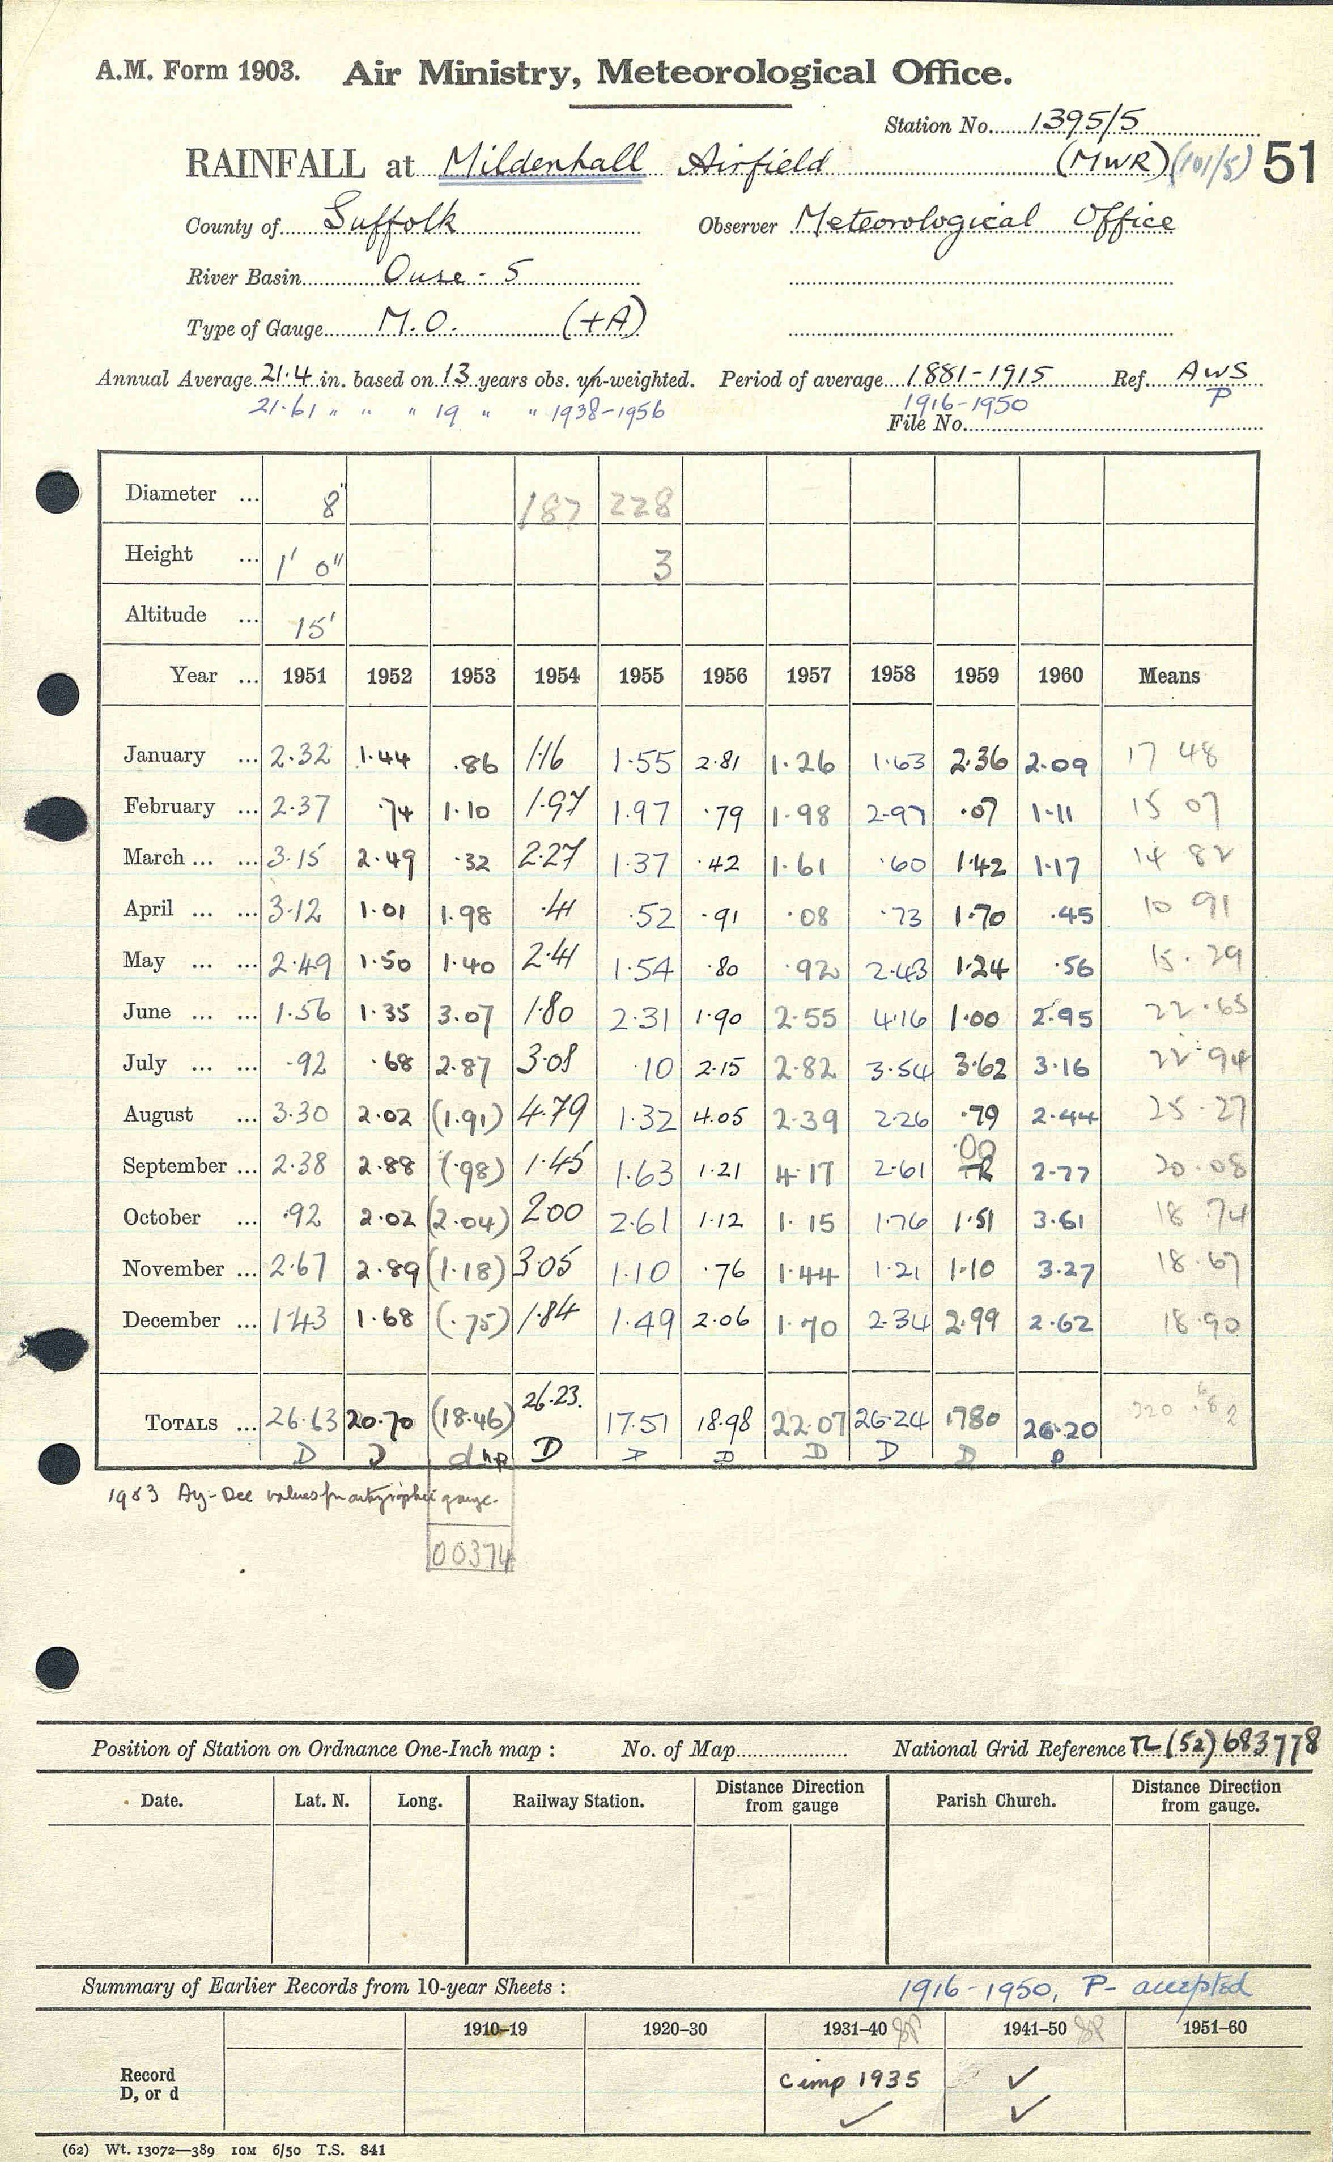 A.M. Form 1903. Air Ministry, Meteorological Office.
Station No. 1395/5
RAINFALL at Mildenhall Airfield (MWR) (101/5) 51
County of Suffolk Observer Meteorological Office
River Basin Ouse - 5
Type of Gauge M.O. (+A)
Annual Average 21.4 in. based on 13 years obs. un-weighted. Period of average 1881-1915 Ref. AWS
21.61 " " " 19 " " 1938-1956 1916-1950 P
File No.
Diameter ... 8" 187 228
Height ... 1' 0" 3
Altitude ... 15'
Year ... 1951 1952 1953 1954 1955 1956 1957 1958 1959 1960 Means
January ... 2.32 1.44 .86 1.16 1.55 2.81 1.26 1.63 2.36 2.09 17 48
February ... 2.37 .74 1.10 1.97 1.97 .79 1.98 2.97 .07 1.11 15 07
March ... ... 3.15 2.49 .32 2.27 1.37 .42 1.61 .60 1.42 1.17 14 82
April ... ... 3.12 1.01 1.98 .41 .52 .91 .08 .73 1.70 .45 10 91
May ... ... 2.49 1.50 1.40 2.41 1.54 .80 .92 2.43 1.24 .56 15.29
June ... ... 1.56 1.35 3.07 1.80 2.31 1.90 2.55 4.16 1.00 2.95 22.65
July ... ... .92 .68 2.87 3.08 .10 2.15 2.82 3.54 3.62 3.16 22.94
August ... 3.30 2.02 (1.91) 4.79 1.32 4.05 2.39 2.26 .79 2.44 25.27
September ... 2.38 2.88 (.98) 1.45 1.63 1.21 4.17 2.61 .00 2.77 20.08
October ... .92 2.02 (2.04) 2.00 2.61 1.12 1.15 1.76 1.51 3.61 18 74
November ... 2.67 2.89 (1.18) 3.05 1.10 .76 1.44 1.21 1.10 3.27 18.67
December ... 1.43 1.68 (.75) 1.84 1.49 2.06 1.70 2.34 2.99 2.62 18.90
TOTALS ... 26.63 20.70 (18.46) 26.23. 17.51 18.98 22.07 26.24 17.80 26.20
D D d D D D D D D P
1953 Aug-Dec values from autographic gauge.
00374
Position of Station on Ordnance One-Inch map : No. of Map National Grid Reference TL (52) 683778
Date. Lat. N. Long. Railway Station. Distance from gauge Direction Parish Church. Distance from gauge. Direction
Summary of Earlier Records from 10-year Sheets : 1916-1950, P- accepted
1910-19 1920-30 1931-40 1941-50 1951-60
Record D, or d comp 1935 ✓
✓ ✓
(62) Wt. 13072—389 10M 6/50 T.S. 841